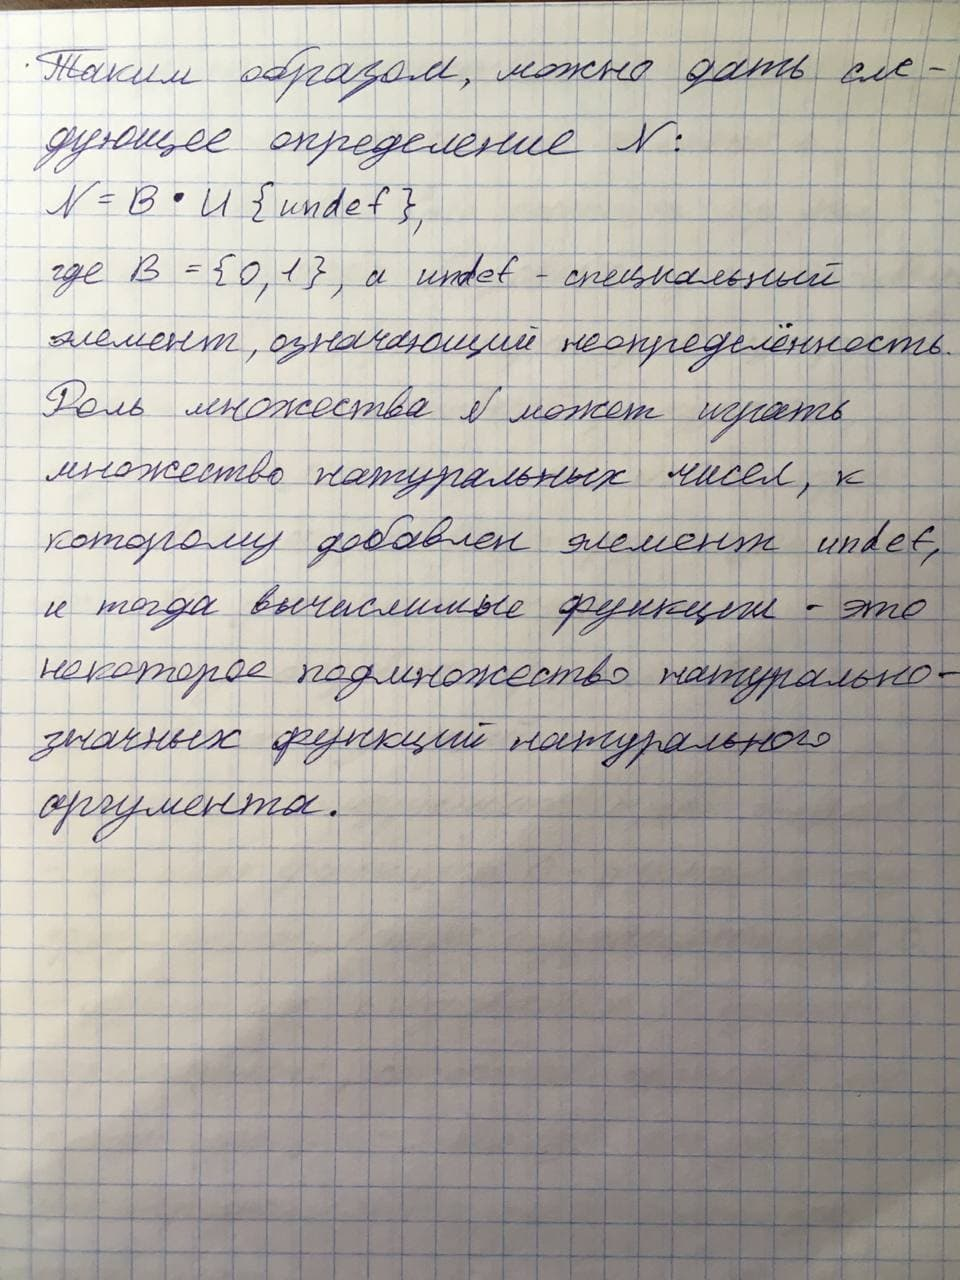 Таким образом, можно дать сле-
дующее определение N:
N = B • U {undef},
где B = {0,1}, а undef - специальный
элемент, означающий неопределённость.
Роль множества N может играть
множество натуральных чисел, к
которому добавлен элемент undef,
и тогда вычислимые функции - это
некоторое подмножество натурально-
значных функций натурального
аргумента.